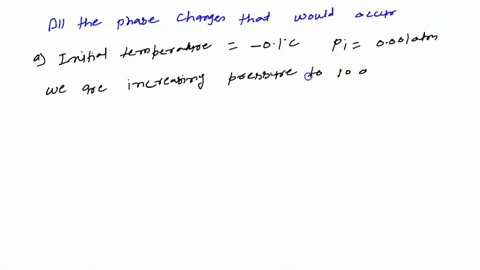 All the phase changes that would occur
a) Initial temperature = -0.1°C Pi = 0.001atm
we are increasing pressure to 100